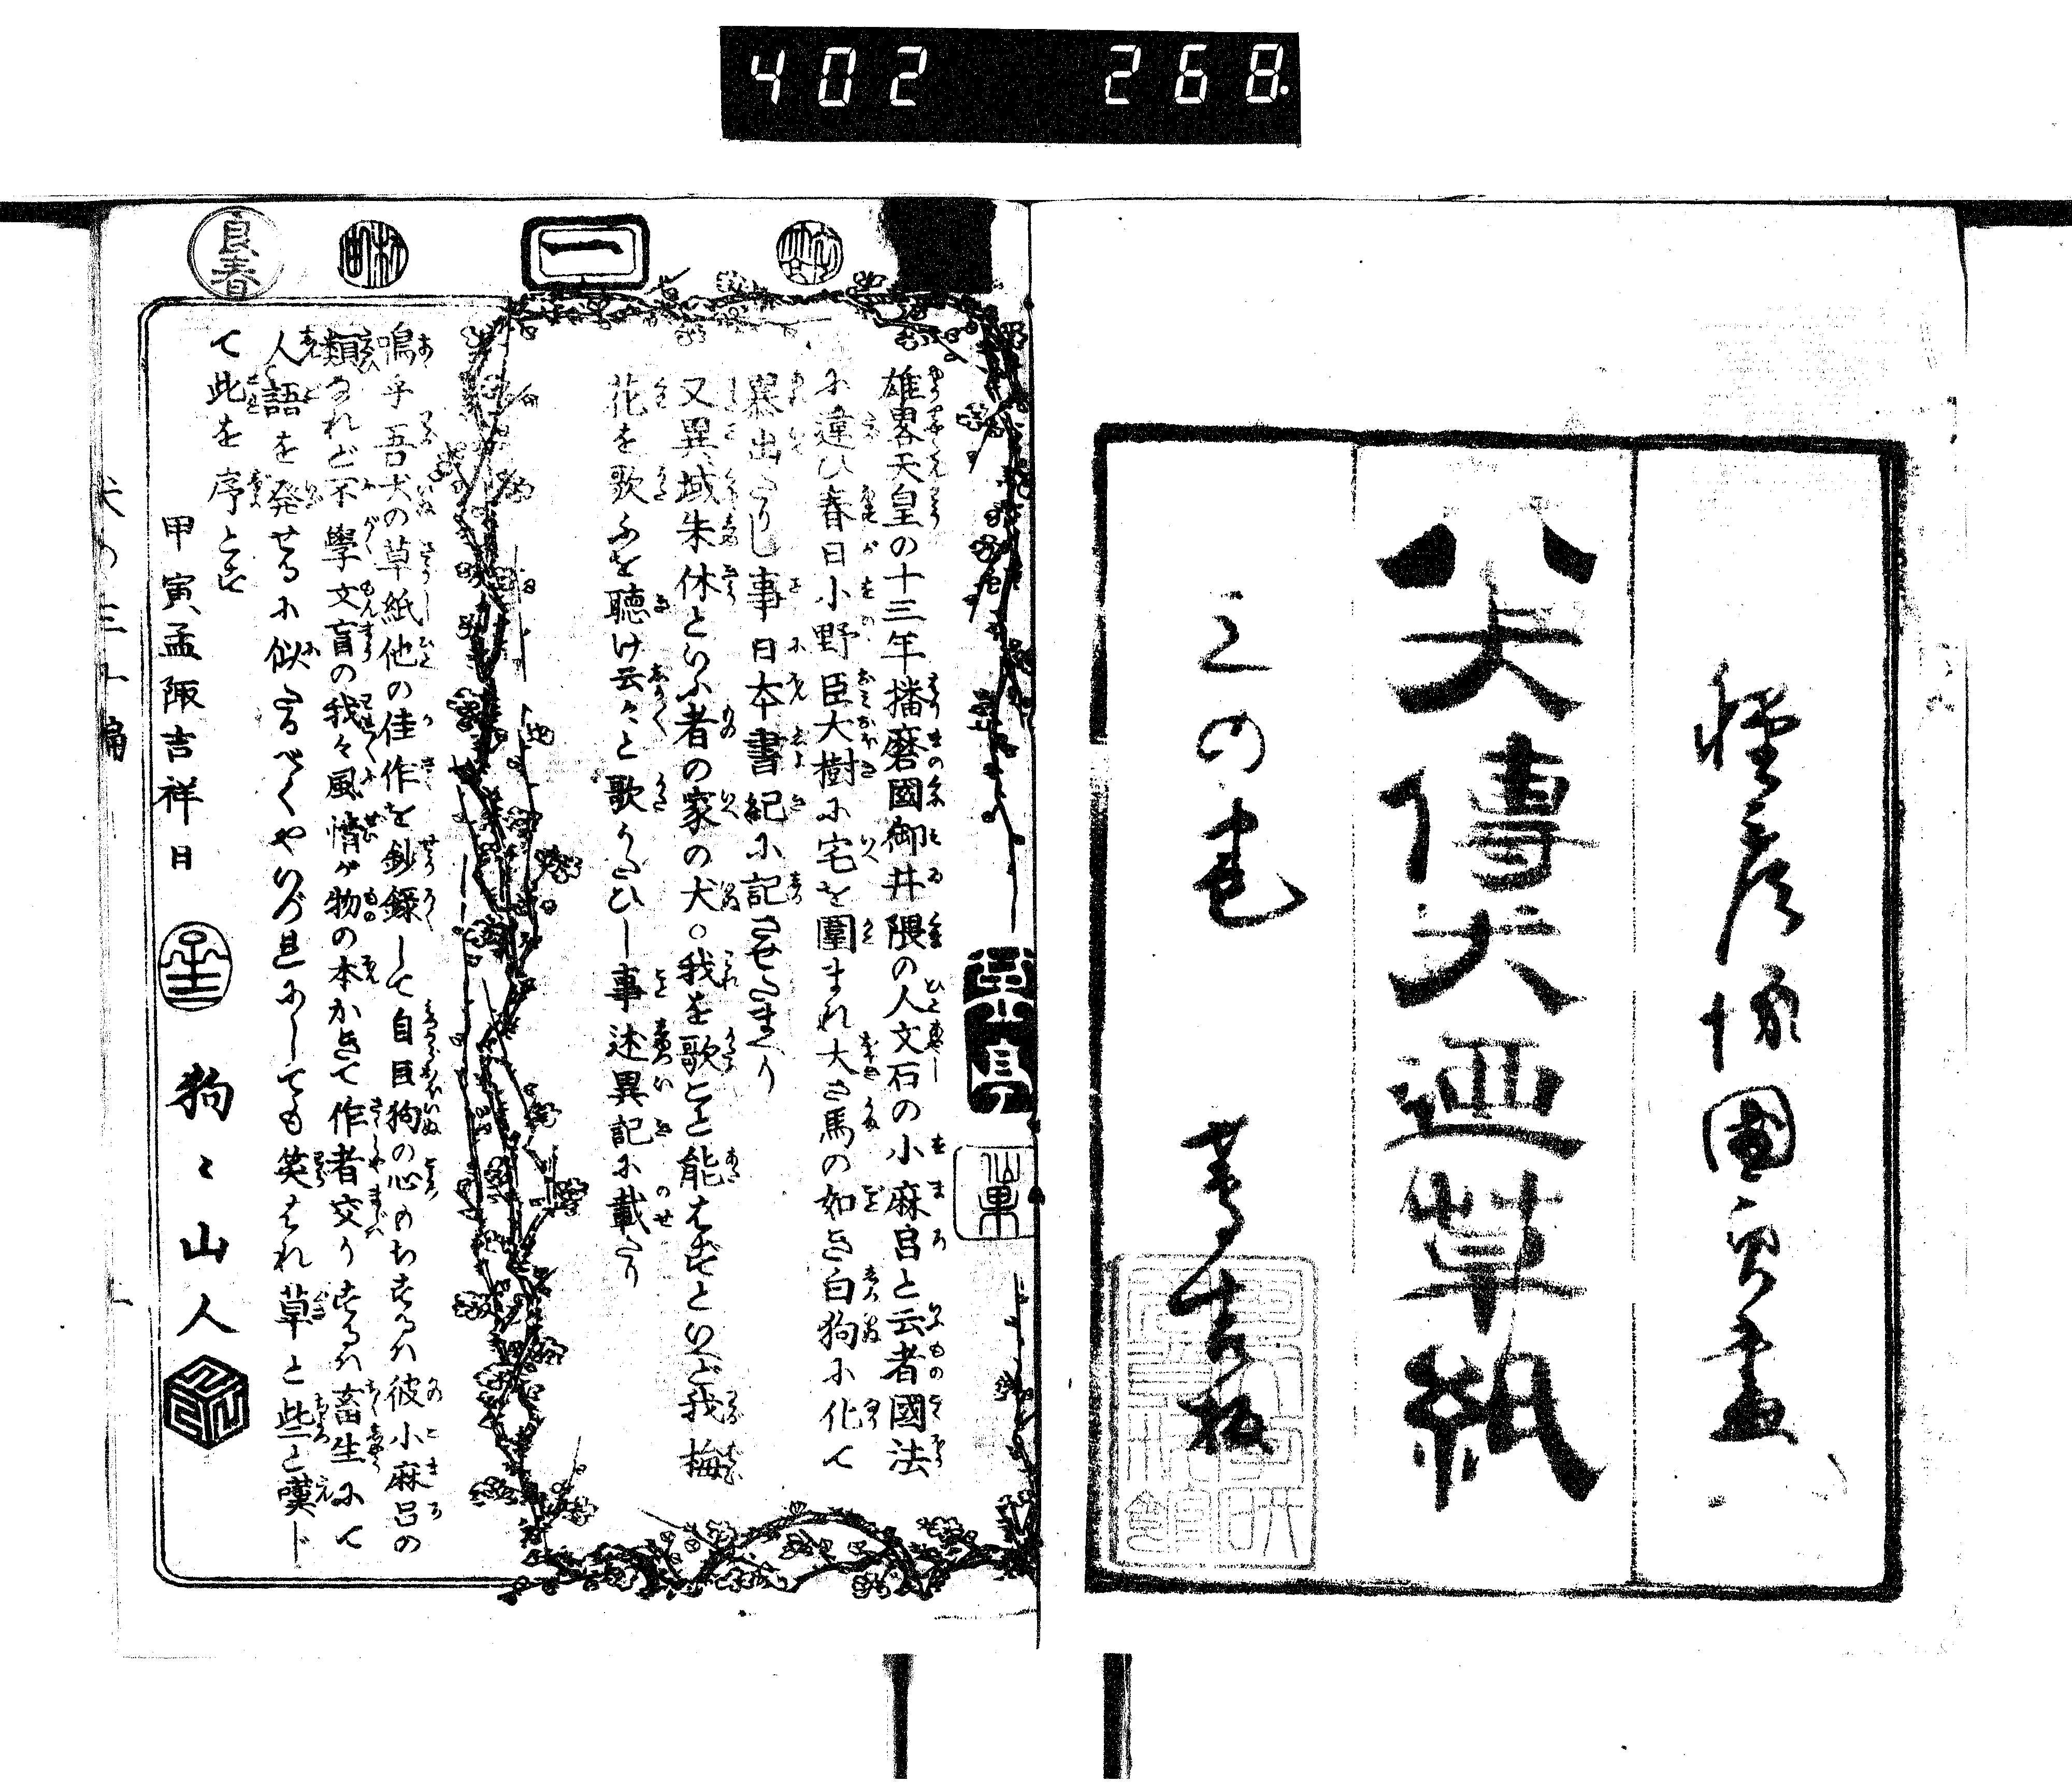 402 268
種彦作国貞画
八犬傳犬廼草紙
三の巻
蔦吉板
雄畧天皇の十三年播磨國御井隈の人文石の小麻呂と云者國法
に違ひ春日小野臣大樹に宅を圍まれ大さ馬の如き白狗に化て
暴出たりし事日本書紀に記させたまへり
又異域朱休といふ者の家の犬。我を歌こと能はずといへど我梅
花を歌ふを聴け云々と歌うたひし事述異記に載たり
嗚乎吾犬の草紙他の佳作を鈔録して自狗の心のちするハ彼小麻呂の
類なれど不學文盲の我々風情が物の本かきて作者交りするハ畜生にて
人語を発せるに似たるべくやいづれにしても笑はれ草と些と嘆じ
て此を序とす
甲寅孟陬吉祥日
狗々山人
一
良春
仙果
犬の三十編
上